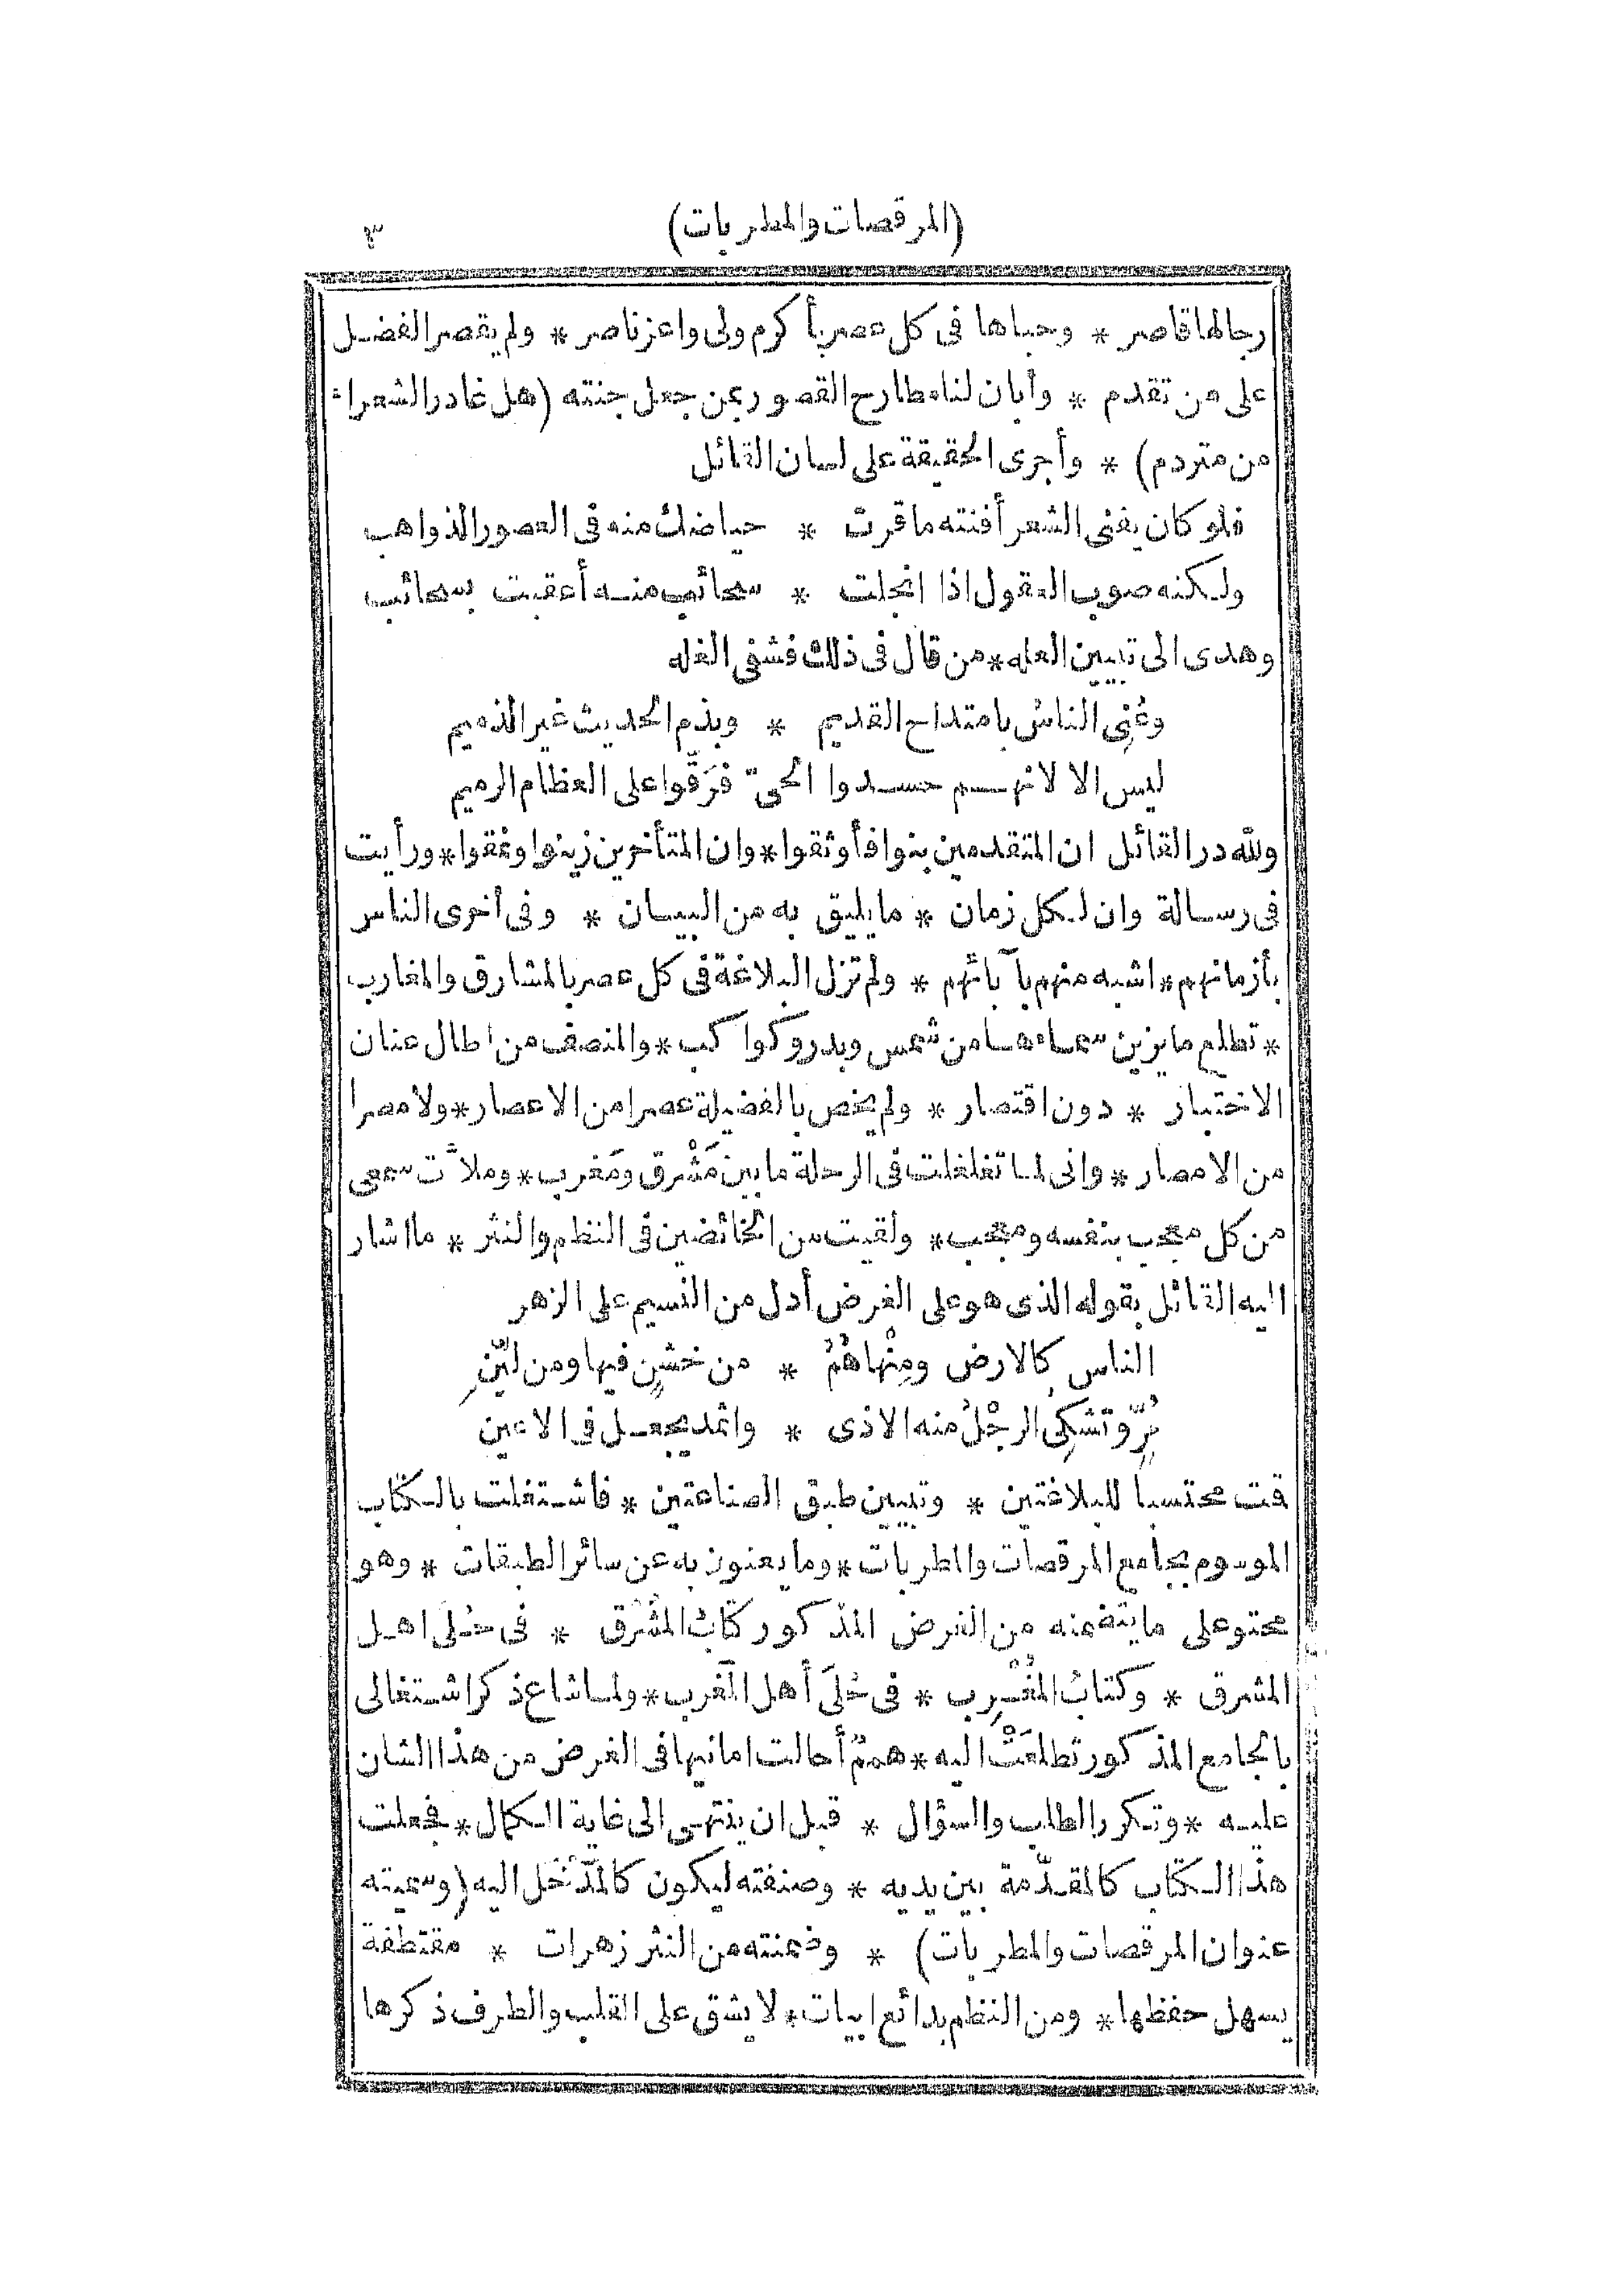 (المرقصات والمطربات) ٣
رجالها قاصر * وحباها فى كل عصر بأكرم ولى واعز ناصر * ولم يقصر الفضل
على من تقدم * وأبان لنا مطارح القصور بمن جعل جنته (هل غادر الشعراء
من متردم) * وأجرى الحقيقة على لسان القائل
فلو كان يفنى الشعر أفنته ما قرت * حياضك منه فى العصور الذواهب
ولكنه صوب العقول اذا انجلت * سحائب منه أعقبت بسحائب
وهدى الى تبيين العله * من قال فى ذلك فشفى الغله
وعُنِى الناسُ بامتداح القديم * وبذم الحديث غير الذميم
ليس الا لانهم حسدوا الحىّ فرَقّوا على العظام الرميم
ولله در القائل ان المتقدمين بنوا فأوثقوا * وان المتأخرين زينوا ونمقوا * ورأيت
فى رسالة وان لكل زمان * ما يليق به من البيان * وفى أخرى الناس
بأزمانهم * اشبه منهم بآبائهم * ولم تزل البلاغة فى كل عصر بالمشارق والمغارب
* تطلع ما يزين سماءها من شمس وبدر وكواكب * والمنصف من اطال عنان
الاختبار * دون اقتصار * ولم يخص بالفضيلة عصرا من الاعصار * ولا مصرا
من الامصار * وانى لما تغلغلت فى الرحلة ما بين مَشْرق ومَغرب * وملأت سمعى
من كل معجب بنفسه ومعجب * ولقيت من الخائضين فى النظم والنثر * ما اشار
اليه القائل بقوله الذى هو على الغرض أدل من النسيم على الزهر
الناس كالارض ومِنْها هُمُ * من خشنٍ فيها ومن ليّنِ
مُرٌّ وتشكى الرجْلُ منه الاذى * واثمد يجعل فى الاعين
قمت محتسبا للبلاغتين * وتبيين طبق الصناعتين * فاشتغلت بالكتاب
الموسوم بجامع المرقصات والمطربات * وما يعنون به عن سائر الطبقات * وهو
محتو على ما يتضمنه من الغرض المذكور كتابُ المُشْرق * فى حُلَى اهل
المشرق * وكتابُ المُغْرِب * فى حُلَى أهل المغرب * ولما شاع ذكر اشتغالى
بالجامع المذكور تطلعَتْ اليه * هممٌ أحالت امانيها فى الغرض من هذا الشان
عليه * وتكرر الطلب والسؤال * قبل ان ينتهى الى غاية الكمال * فجعلت
هذا الكتاب كالمقدّمة بين يديه * وصنفته ليكون كالمَدْخَل اليه (وسميته
عنوان المرقصات والمطربات) * وضمنته من النثر زهرات * مقتطفة
يسهل حفظها * ومن النظم بدائع ابيات * لا يشق على القلب والطرف ذكرها